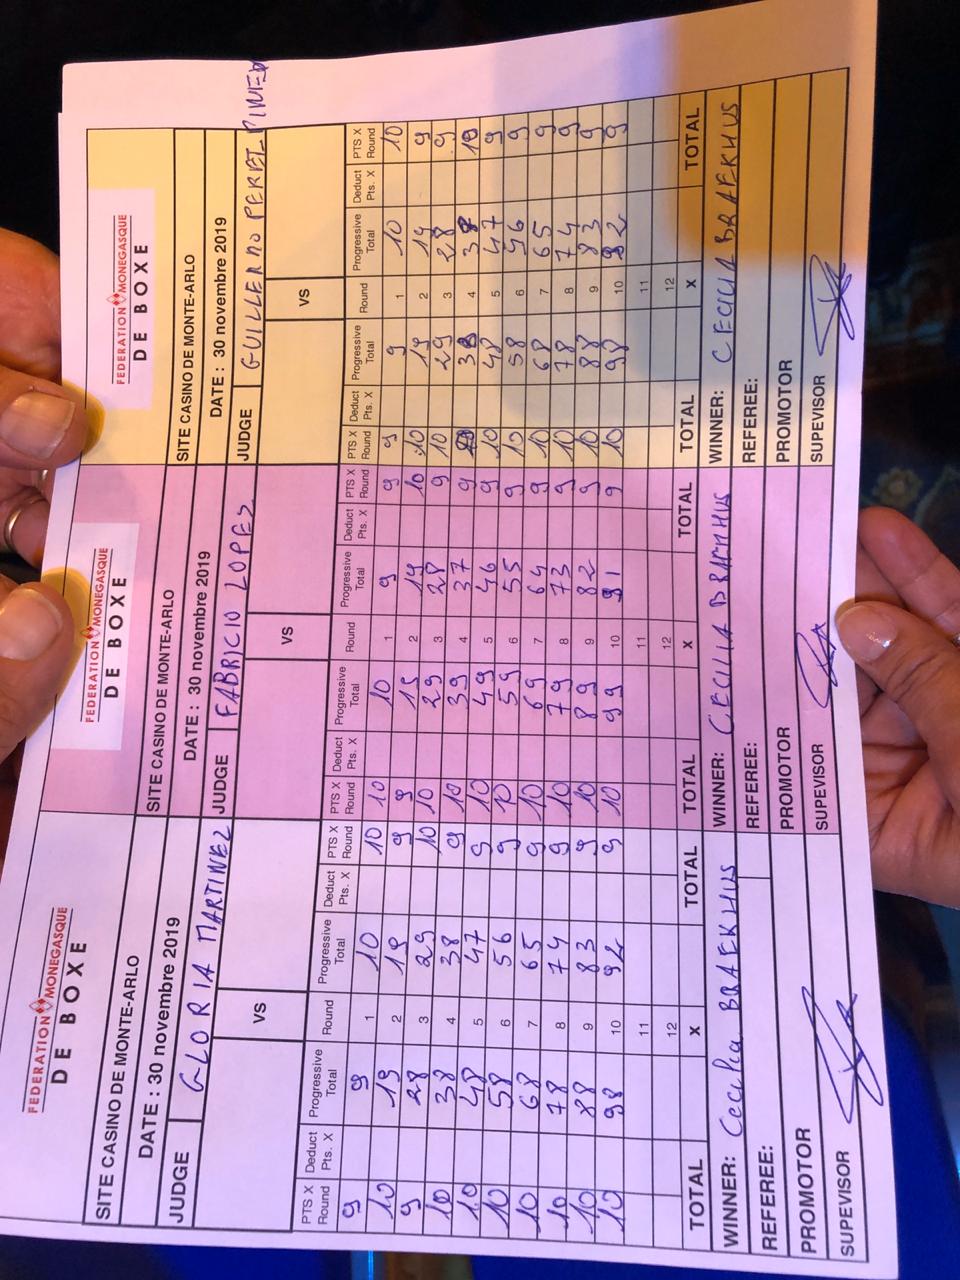 FEDERATION MONEGASQUE
DE BOXE
SITE CASINO DE MONTE-ARLO
DATE : 30 novembre 2019
JUDGE GLORIA MARTINEZ
VS
PTS X Round Deduct Pts. X Progressive Total Round Progressive Total Deduct Pts. X PTS X Round
9 9 1 10 10
10 19 2 19 9
9 28 3 29 10
10 38 4 38 9
10 48 5 47 9
10 58 6 56 9
10 68 7 65 9
10 78 8 74 9
10 88 9 83 9
10 98 10 92 9
11
12
TOTAL X TOTAL
WINNER: Cecilia BRAEKHUS
REFEREE:
PROMOTOR
SUPERVISOR
FEDERATION MONEGASQUE
DE BOXE
SITE CASINO DE MONTE-ARLO
DATE : 30 novembre 2019
JUDGE FABRICIO LOPES
VS
PTS X Round Deduct Pts. X Progressive Total Round Progressive Total Deduct Pts. X PTS X Round
10 10 1 9 9
9 19 2 19 10
10 29 3 28 9
10 39 4 37 9
10 49 5 46 9
10 59 6 55 9
10 69 7 64 9
10 79 8 73 9
10 89 9 82 9
10 99 10 91 9
11
12
TOTAL X TOTAL
WINNER: CECILIA BRAEKHUS
REFEREE:
PROMOTOR
SUPERVISOR
FEDERATION MONEGASQUE
DE BOXE
SITE CASINO DE MONTE-ARLO
DATE : 30 novembre 2019
JUDGE GUILLERMO PEREZ PINEDA
VS
PTS X Round Deduct Pts. X Progressive Total Round Progressive Total Deduct Pts. X PTS X Round
9 9 1 10 10
10 19 2 19 9
10 29 3 28 9
38 4 38 10
10 48 5 47 9
10 58 6 56 9
10 68 7 65 9
10 78 8 74 9
10 88 9 83 9
10 98 10 92 9
11
12
TOTAL X TOTAL
WINNER: CECILIA BRAEKHUS
REFEREE:
PROMOTOR
SUPERVISOR